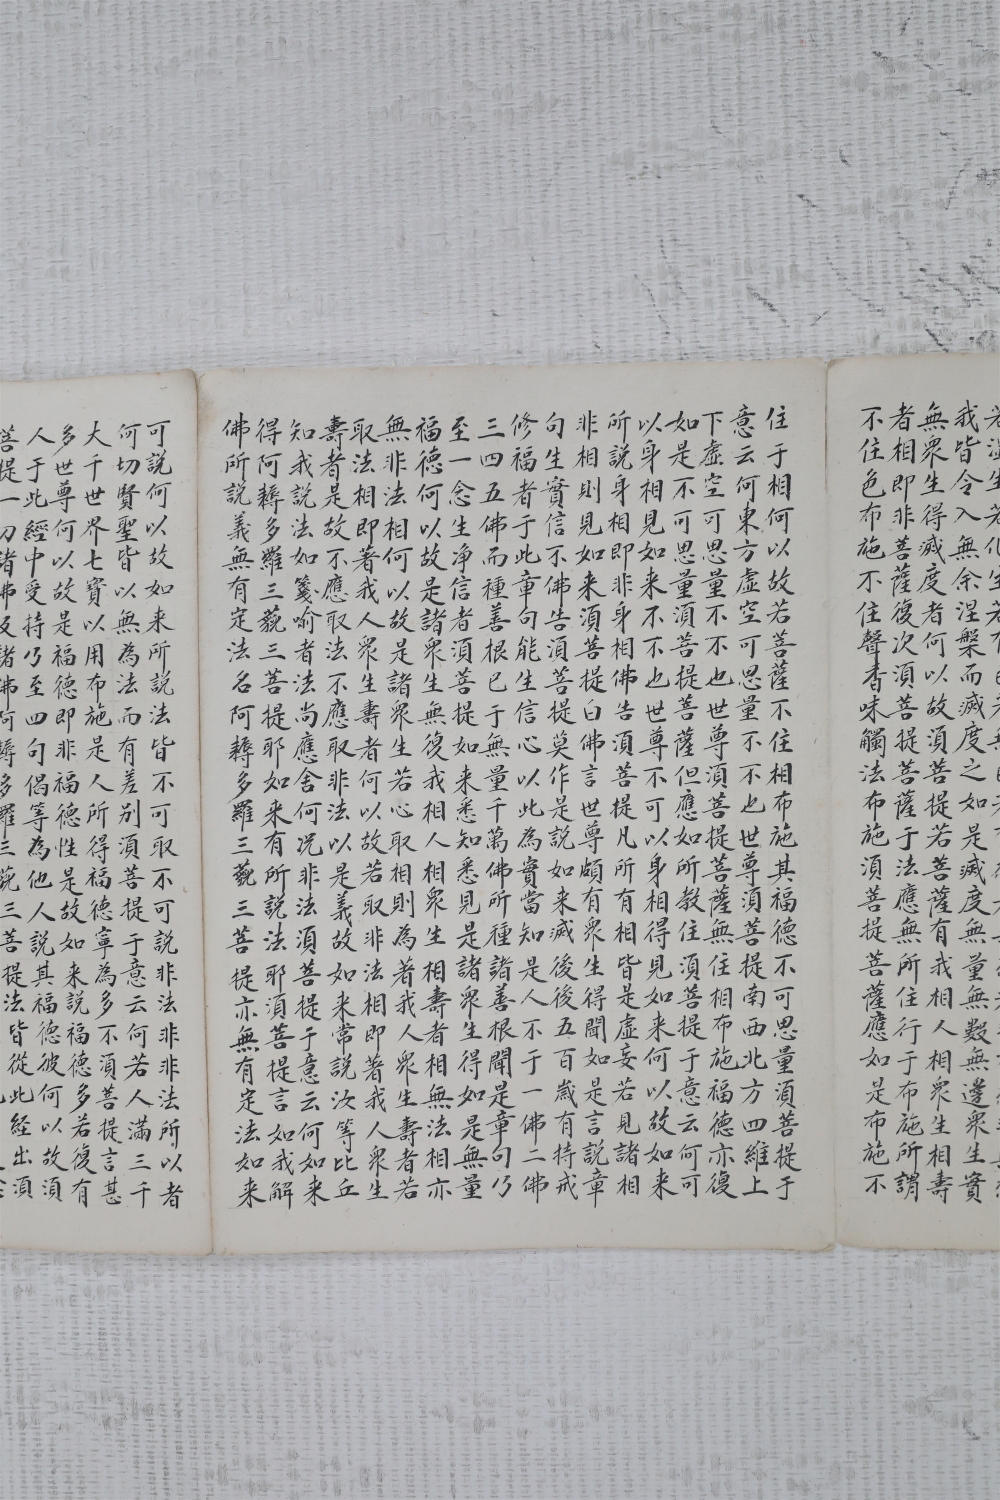 我皆令入無余涅槃而滅度之如是滅度無量無數無邊衆生實
無衆生得滅度者何以故須菩提若菩薩有我相人相衆生相壽
者相即非菩薩復次須菩提菩薩于法應無所住行于布施所謂
不住色布施不住聲香味觸法布施須菩提菩薩應如是布施不
住于相何以故若菩薩不住相布施其福德不可思量須菩提于
意云何東方虛空可思量不不也世尊須菩提南西北方四維上
下虛空可思量不不也世尊須菩提菩薩無住相布施福德亦復
如是不可思量須菩提菩薩但應如所教住須菩提于意云何可
以身相見如来不不也世尊不可以身相得見如来何以故如来
所説身相即非身相佛告須菩提凡所有相皆是虛妄若見諸相
非相則見如来須菩提白佛言世尊頗有衆生得聞如是言説章
句生實信不佛告須菩提莫作是説如来滅後後五百歳有持戒
修福者于此章句能生信心以此為實當知是人不于一佛二佛
三四五佛而種善根已于無量千萬佛所種諸善根聞是章句乃
至一念生净信者須菩提如来悉知悉見是諸衆生得如是無量
福德何以故是諸衆生無復我相人相衆生相壽者相無法相亦
無非法相何以故是諸衆生若心取相則為著我人衆生壽者若
取法相即著我人衆生壽者何以故若取非法相即著我人衆生
壽者是故不應取法不應取非法以是義故如来常説汝等比丘
知我説法如筏喻者法尚應舍何况非法須菩提于意云何如来
得阿耨多羅三藐三菩提耶如来有所説法耶須菩提言如我解
佛所説義無有定法名阿耨多羅三藐三菩提亦無有定法如来
可説何以故如来所説法皆不可取不可説非法非非法所以者
何切賢聖皆以無為法而有差别須菩提于意云何若人滿三千
大千世界七寶以用布施是人所得福德寧為多不須菩提言甚
多世尊何以故是福德即非福德性是故如来説福德多若復有
人于此經中受持乃至四句偈等為他人説其福德彼何以故須
菩提一切諸佛及諸佛阿耨多羅三藐三菩提法皆從此經出須